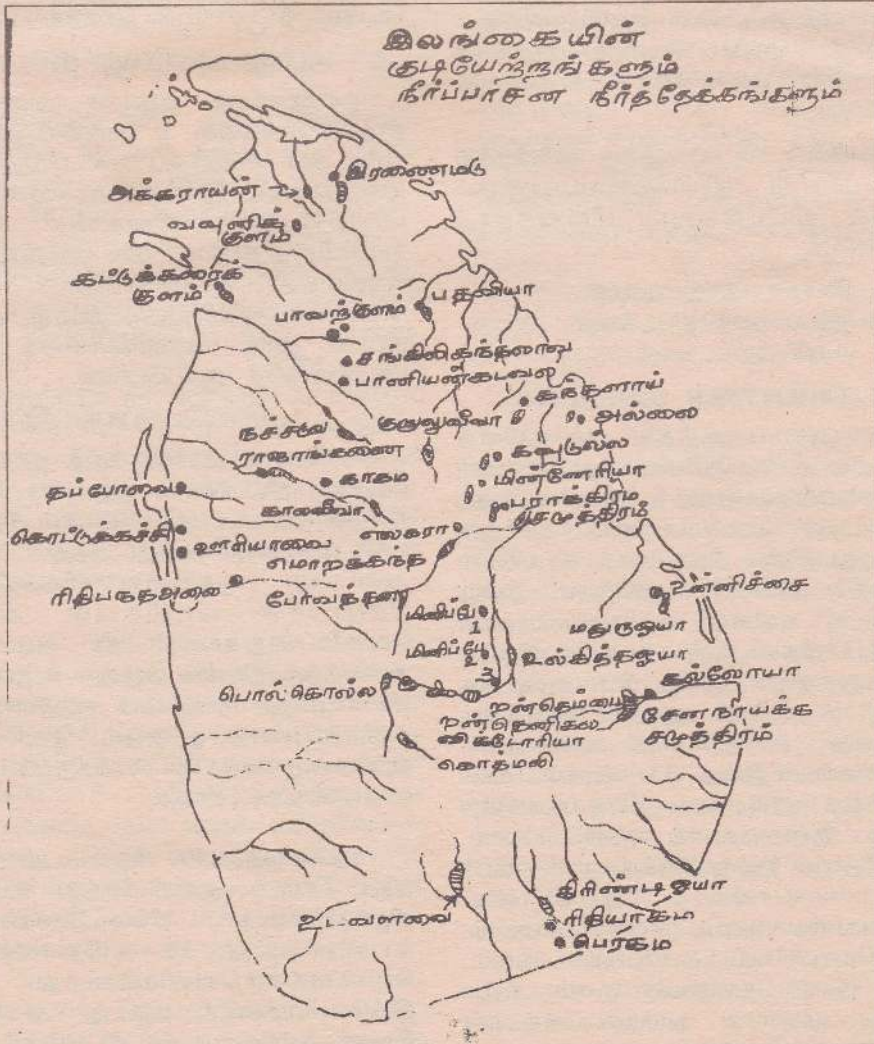 இலங்கையின்
குடியேற்றங்களும்
நீர்ப்பாசன நீர்த்தேக்கங்களும்
இரணைமடு
அக்கராயன்
வவுனிக்
குளம்
கட்டுக்கரைக்
குளம்
பாவற்குளம்
பதவியா
சங்கிலிகந்தலாவ
பானியன்கடவல
கந்தளாய்
குருலுவீவா
அல்லை
நச்சதுவ
கவுடுல்ல
ராஜாங்கணை
மின்னேரியா
காகம
தப்போவை
பராக்கிரம
சமுத்திரம்
காலவீவா
எலகரா
கொட்டுக்கச்சி
ஊரியாவை
மொறக்கந்த
ரிதிபந்தஅலை
போவத்தன
உன்னிச்சை
மினிப்பே
1
மதுருஓயா
மினிப்பே
2
உல்கித்தஓயா
3
கல்லோயா
பொல்கொல்ல
றன்தெம்பை
றன்தெனிகல
சேனநாயக்க
சமுத்திரம்
விக்டோரியா
கொத்மலி
கிரிண்டிஓயா
உடவளவை
ரிதியாகம
பெரகம